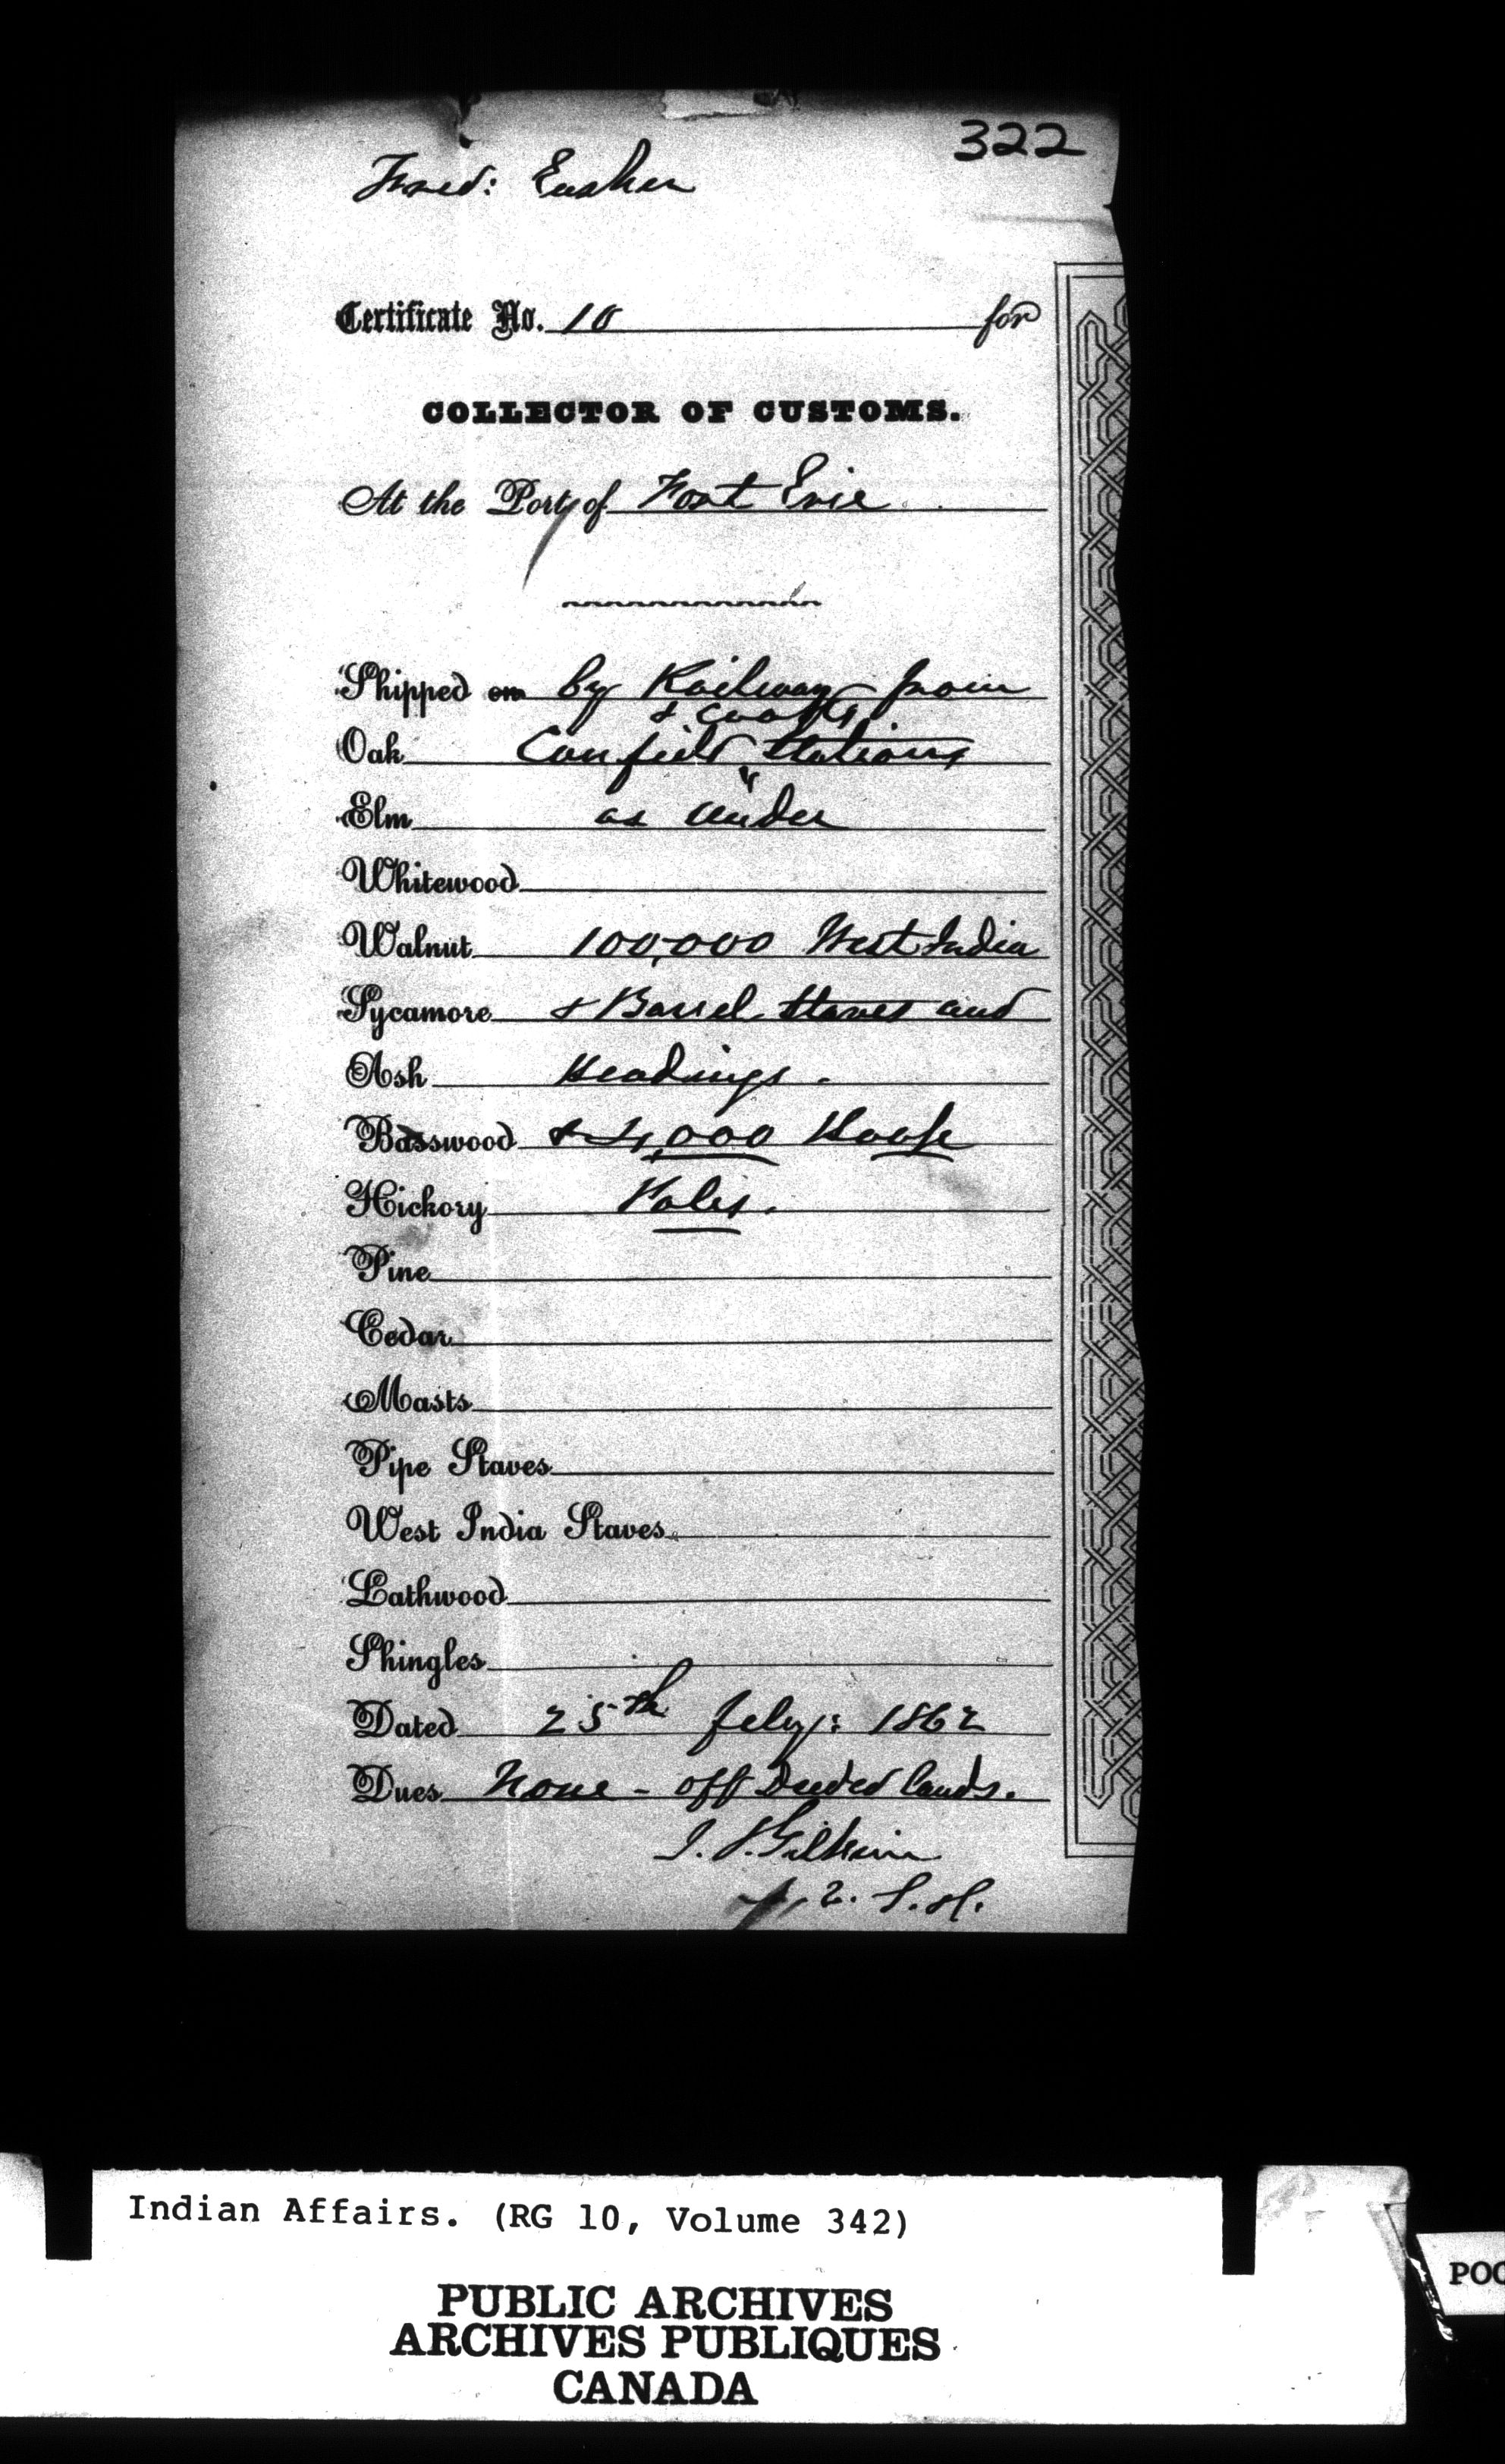 322
Fred: Easher
Certificate No. 10 for
COLLECTOR OF CUSTOMS.
At the Port of Fort Erie
Shipped on by Railway from
& Cooks
Oak Canfield Stations
Elm as under
Whitewood
Walnut 100,000 West India
Sycamore & Barrel Staves and
Ash Headings.
Basswood & 4,000 Hoop
Hickory Poles.
Pine
Cedar
Masts
Pipe Staves
West India Staves
Lathwood
Shingles
Dated 25th Feby: 1862
Dues None - off Deeded lands.
J. T. Gilkison
S. I. A.
Indian Affairs. (RG 10, Volume 342)
PUBLIC ARCHIVES
ARCHIVES PUBLIQUES
CANADA
POC